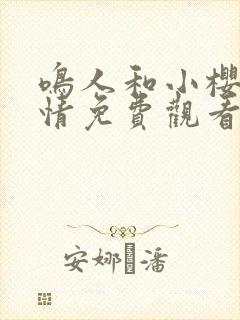 鳴人和小櫻
情免費觀看
安娜 潘